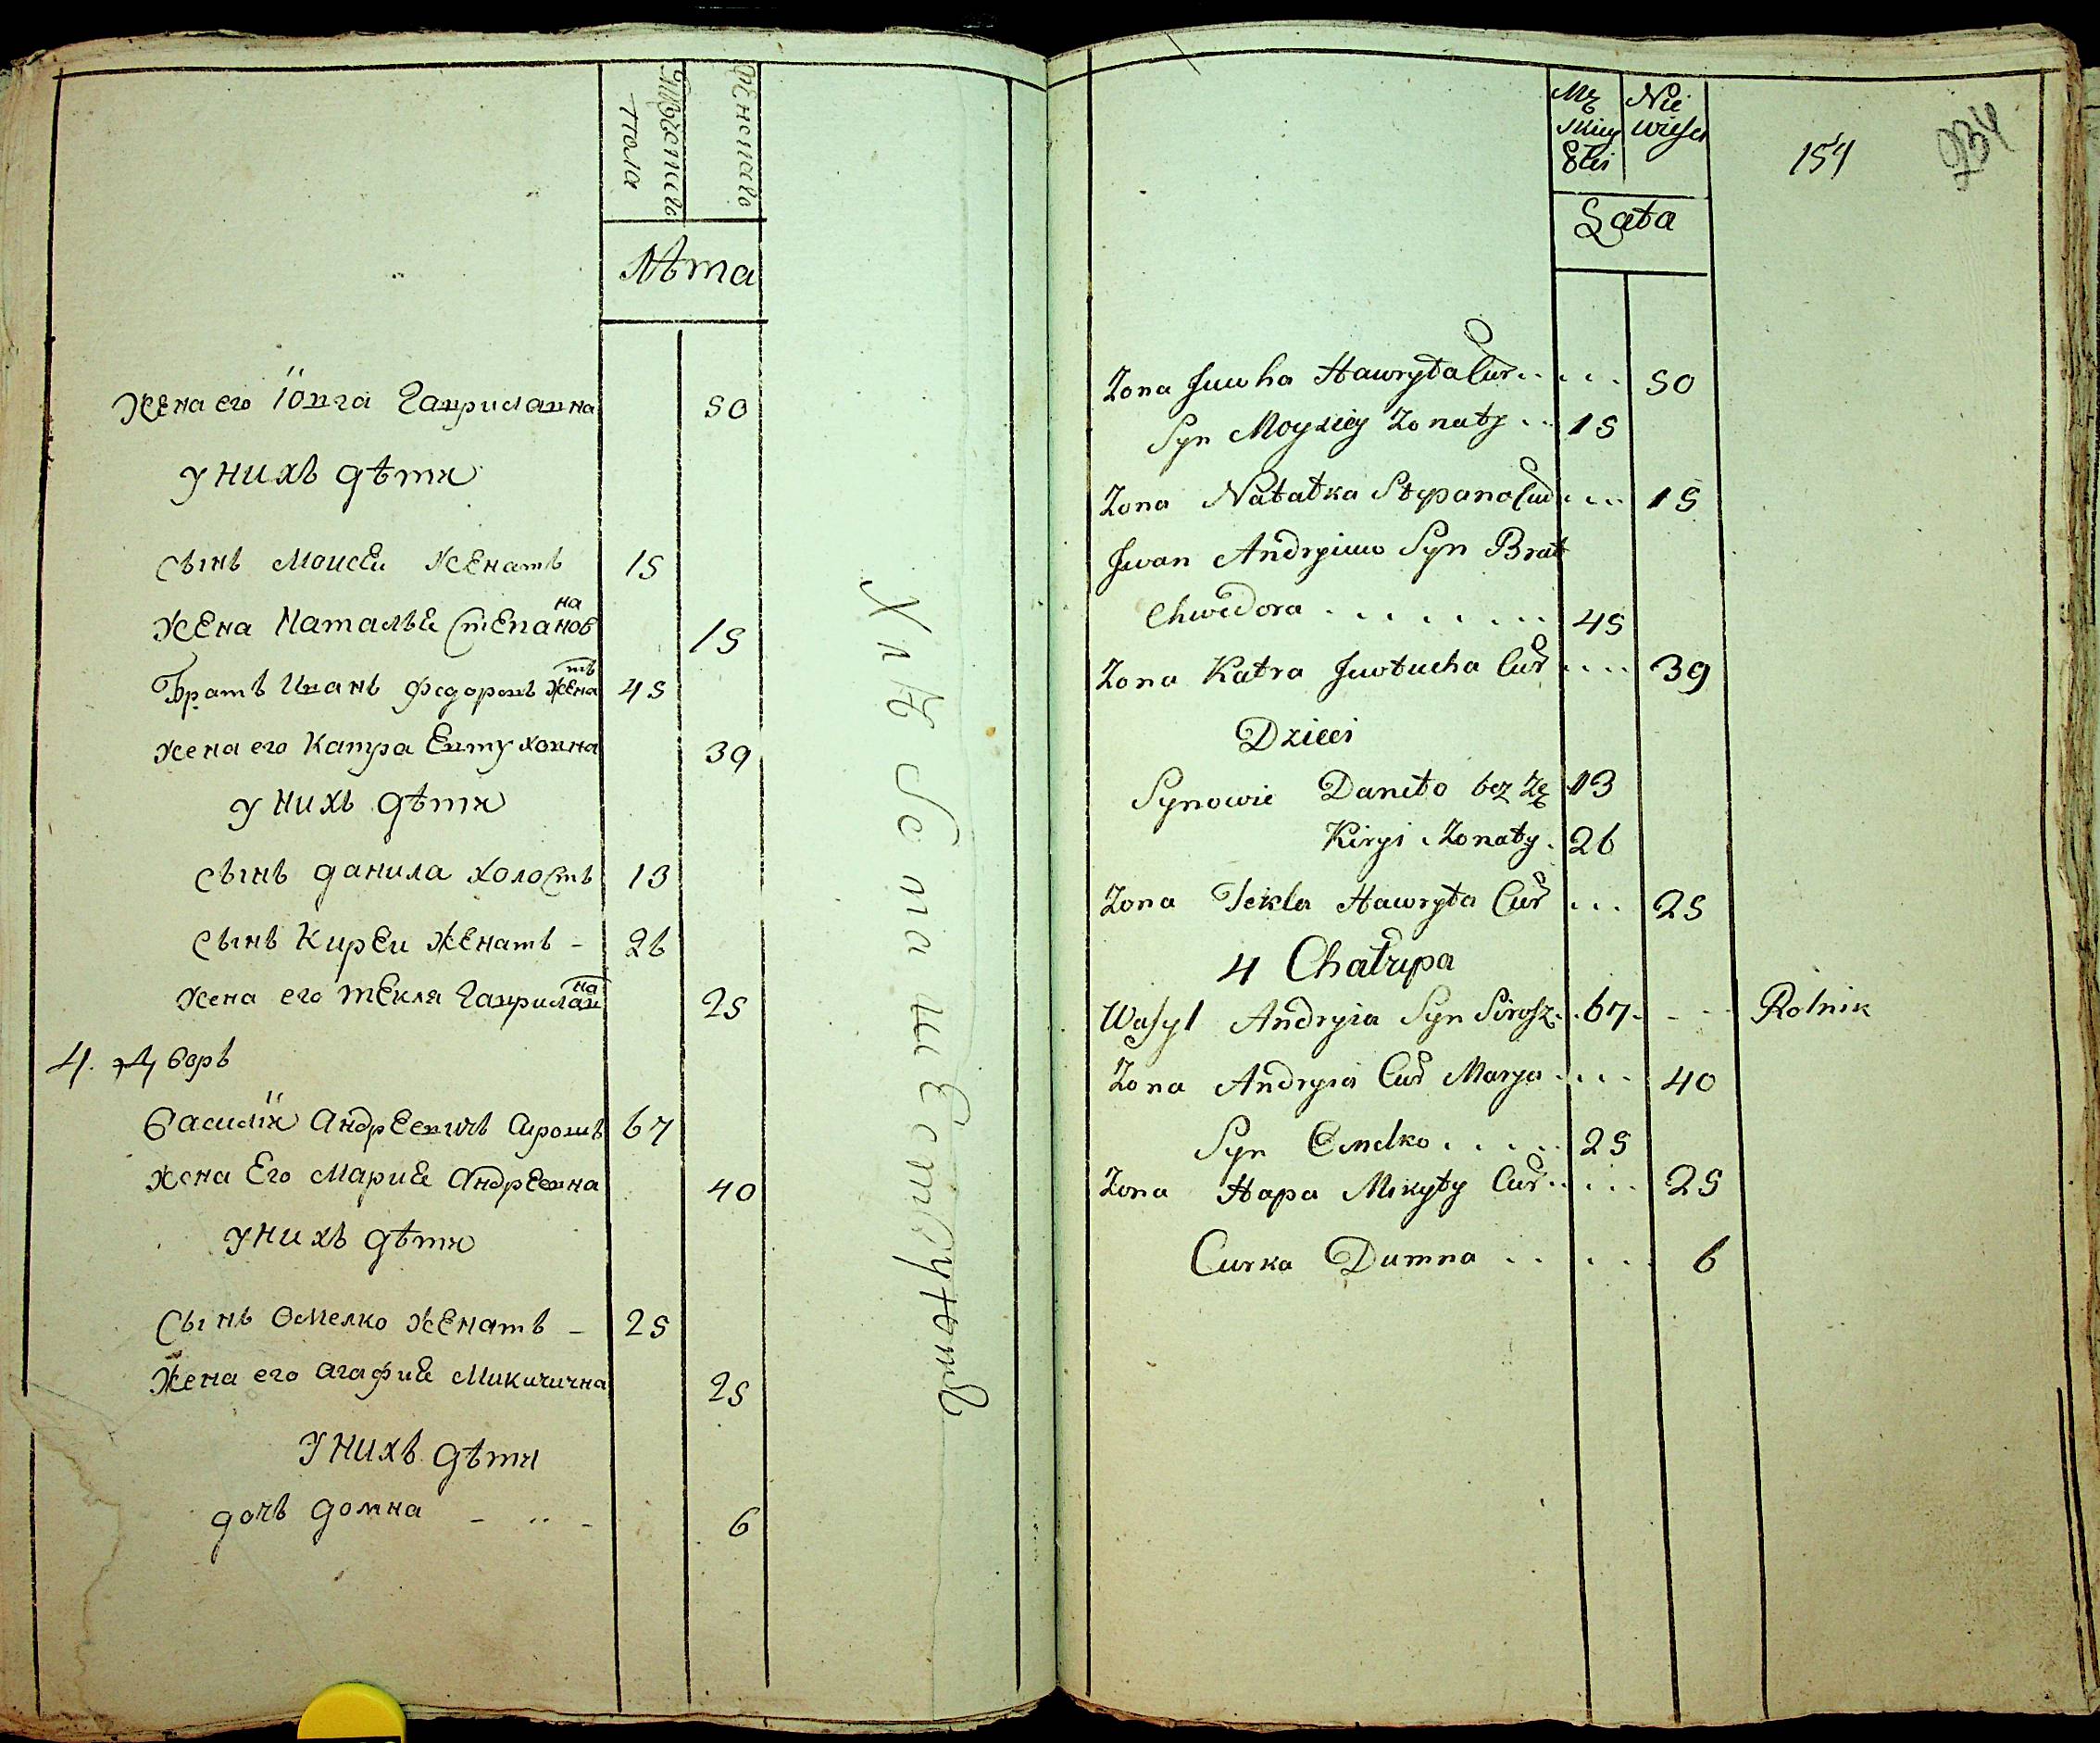 Мужескаго
пола
Женскаго
Лѣта
Жена его Ювга Гавриловна 50
у нихъ дѣти
сынъ Моисей женатъ 15
жена Наталья Степановна 15
Братъ Иванъ Федоровъ женатъ 45
жена его Катра Евтуховна 39
у нихъ дѣти
сынъ данила холостъ 13
сынъ Кирей женатъ - 26
жена его текля Гавриловна 25
4. дворъ
Василій Андреевичъ Сирошъ 67
жена Его Мария Андреевна 40
у нихъ дѣти
Сынъ Омелко женатъ - 25
Жена его агафия Микитична 25
У нихъ дѣти
дочь домна - .. - 6
Mę
skiey
Płci
Nie
wiesci
Lata
154
934
Zona Juwha Hawryła Cur . . . . 50
Syn Moysiey Zonaty . . 15
Zona Natałka Stepana Cur . . . 15
Jwan Andryiuw Syn Brat
Chwedora . . . . . . . . 45
Zona Katra Juwtucha Cur . . . . 39
Dzieci
Synowie Daniło bez Zę 13
Kiryi Zonaty . 26
Zona Tekla Hawryła Cur . . . 25
4 Chałupa
Wasyl Andryia Syn Sirosz . . 67 . - - - Rolnik
Zona Andryia Cur Marya . . . . 40
Syn Omelko . . . . . 25
Zona Hapa Mikyty Cur . . . . . 25
Curka Dumna . . . . 6